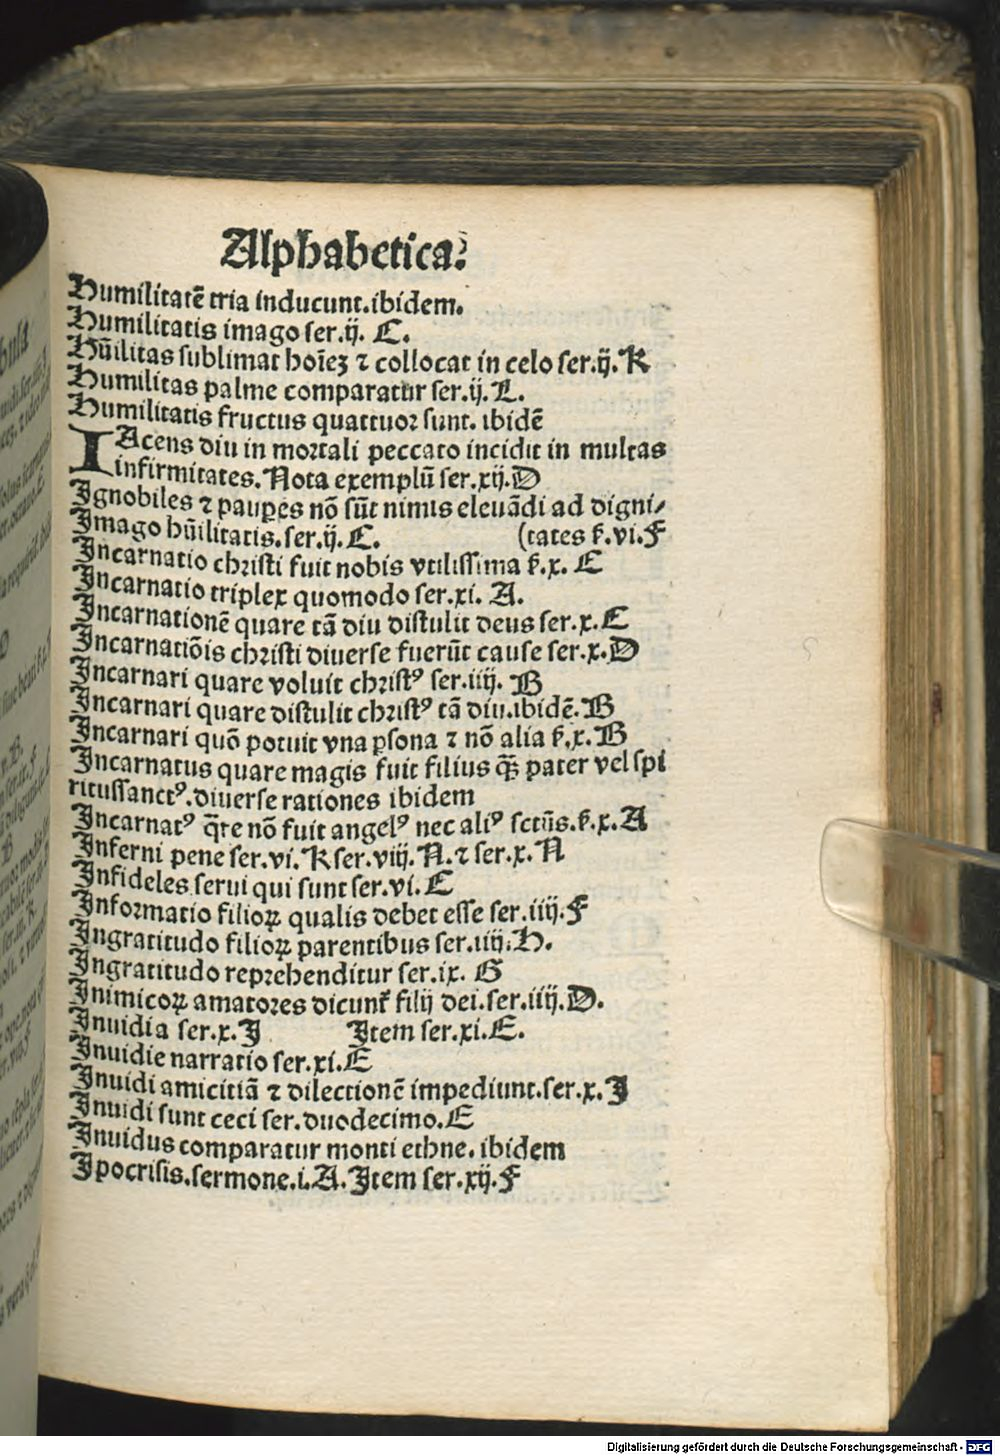 Alphabetica.
Humilitatē tria inducunt.ibidem.
Humilitatis imago ser.ij. C.
Hūilitas sublimat hoīeʒ ⁊ collocat in celo ser.ij.K
Humilitas palme comparatur ser.ij.L.
Humilitatis fructus quattuor sunt. ibidē
IAcens diu in mortali peccato incidit in multas
infirmitates.Nota exemplū ser.xij.D
Ignobiles ⁊ paupes nō sūt nimis eleuādi ad digni⸗
Imago hūilitatis.ser.ij.C. (tates ẜ.vi.F
Incarnatio christi fuit nobis vtilissima ẜ.x. C
Incarnatio triplex quomodo ser.xi. A.
Incarnationē quare tā diu distulit deus ser.x.C
Incarnatiōis christi diuerse fuerūt cause ser.x.D
Incarnari quare voluit christꝰ ser.iiij. B
Incarnari quare distulit christꝰ tā diu.ibidē.B
Incarnari quō potuit vna ꝑsona ⁊ nō alia ẜ.x.B
Incarnatus quare magis fuit filius q̄ꝫ pater vel spi
ritussanctꝰ.diuerse rationes ibidem
Incarnatꝰ q̄re nō fuit angelꝰ nec aliꝰ sctūs.ẜ.x.A
Inferni pene ser.vi.K ser.viij.N.⁊ ser.x.N
Infideles serui qui sunt ser.vi.C
Informatio filioꝝ qualis debet esse ser.iiij.F
Ingratitudo filioꝝ parentibus ser.iiij.H.
Ingratitudo reprehenditur ser.ix. G
Inimicoꝝ amatores dicunt̄ filij dei.ser.iiij.D.
Inuidia ser.x.I Item ser.xi.E.
Inuidie narratio ser.xi.E
Inuidi amicitiā ⁊ dilectionē impediunt.ser.x.I
Inuidi sunt ceci ser.duodecimo.E
Inuidus comparatur monti ethne.ibidem
Ipocrisis.sermone.i.A.Item ser.xij.F
Digitalisierung gefördert durch die Deutsche Forschungsgemeinschaft - DFG